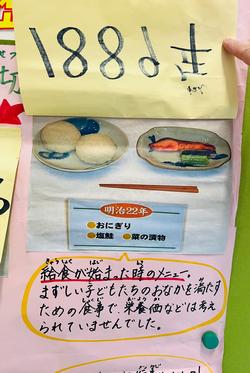 1889年
切
明治22年
●おにぎり
●塩鮭 ●菜の漬物
給食が始まった時のメニュー。
まずしい子どもたちのおなかを満たす
ための食事で、栄養価などは考え
られていませんでした。